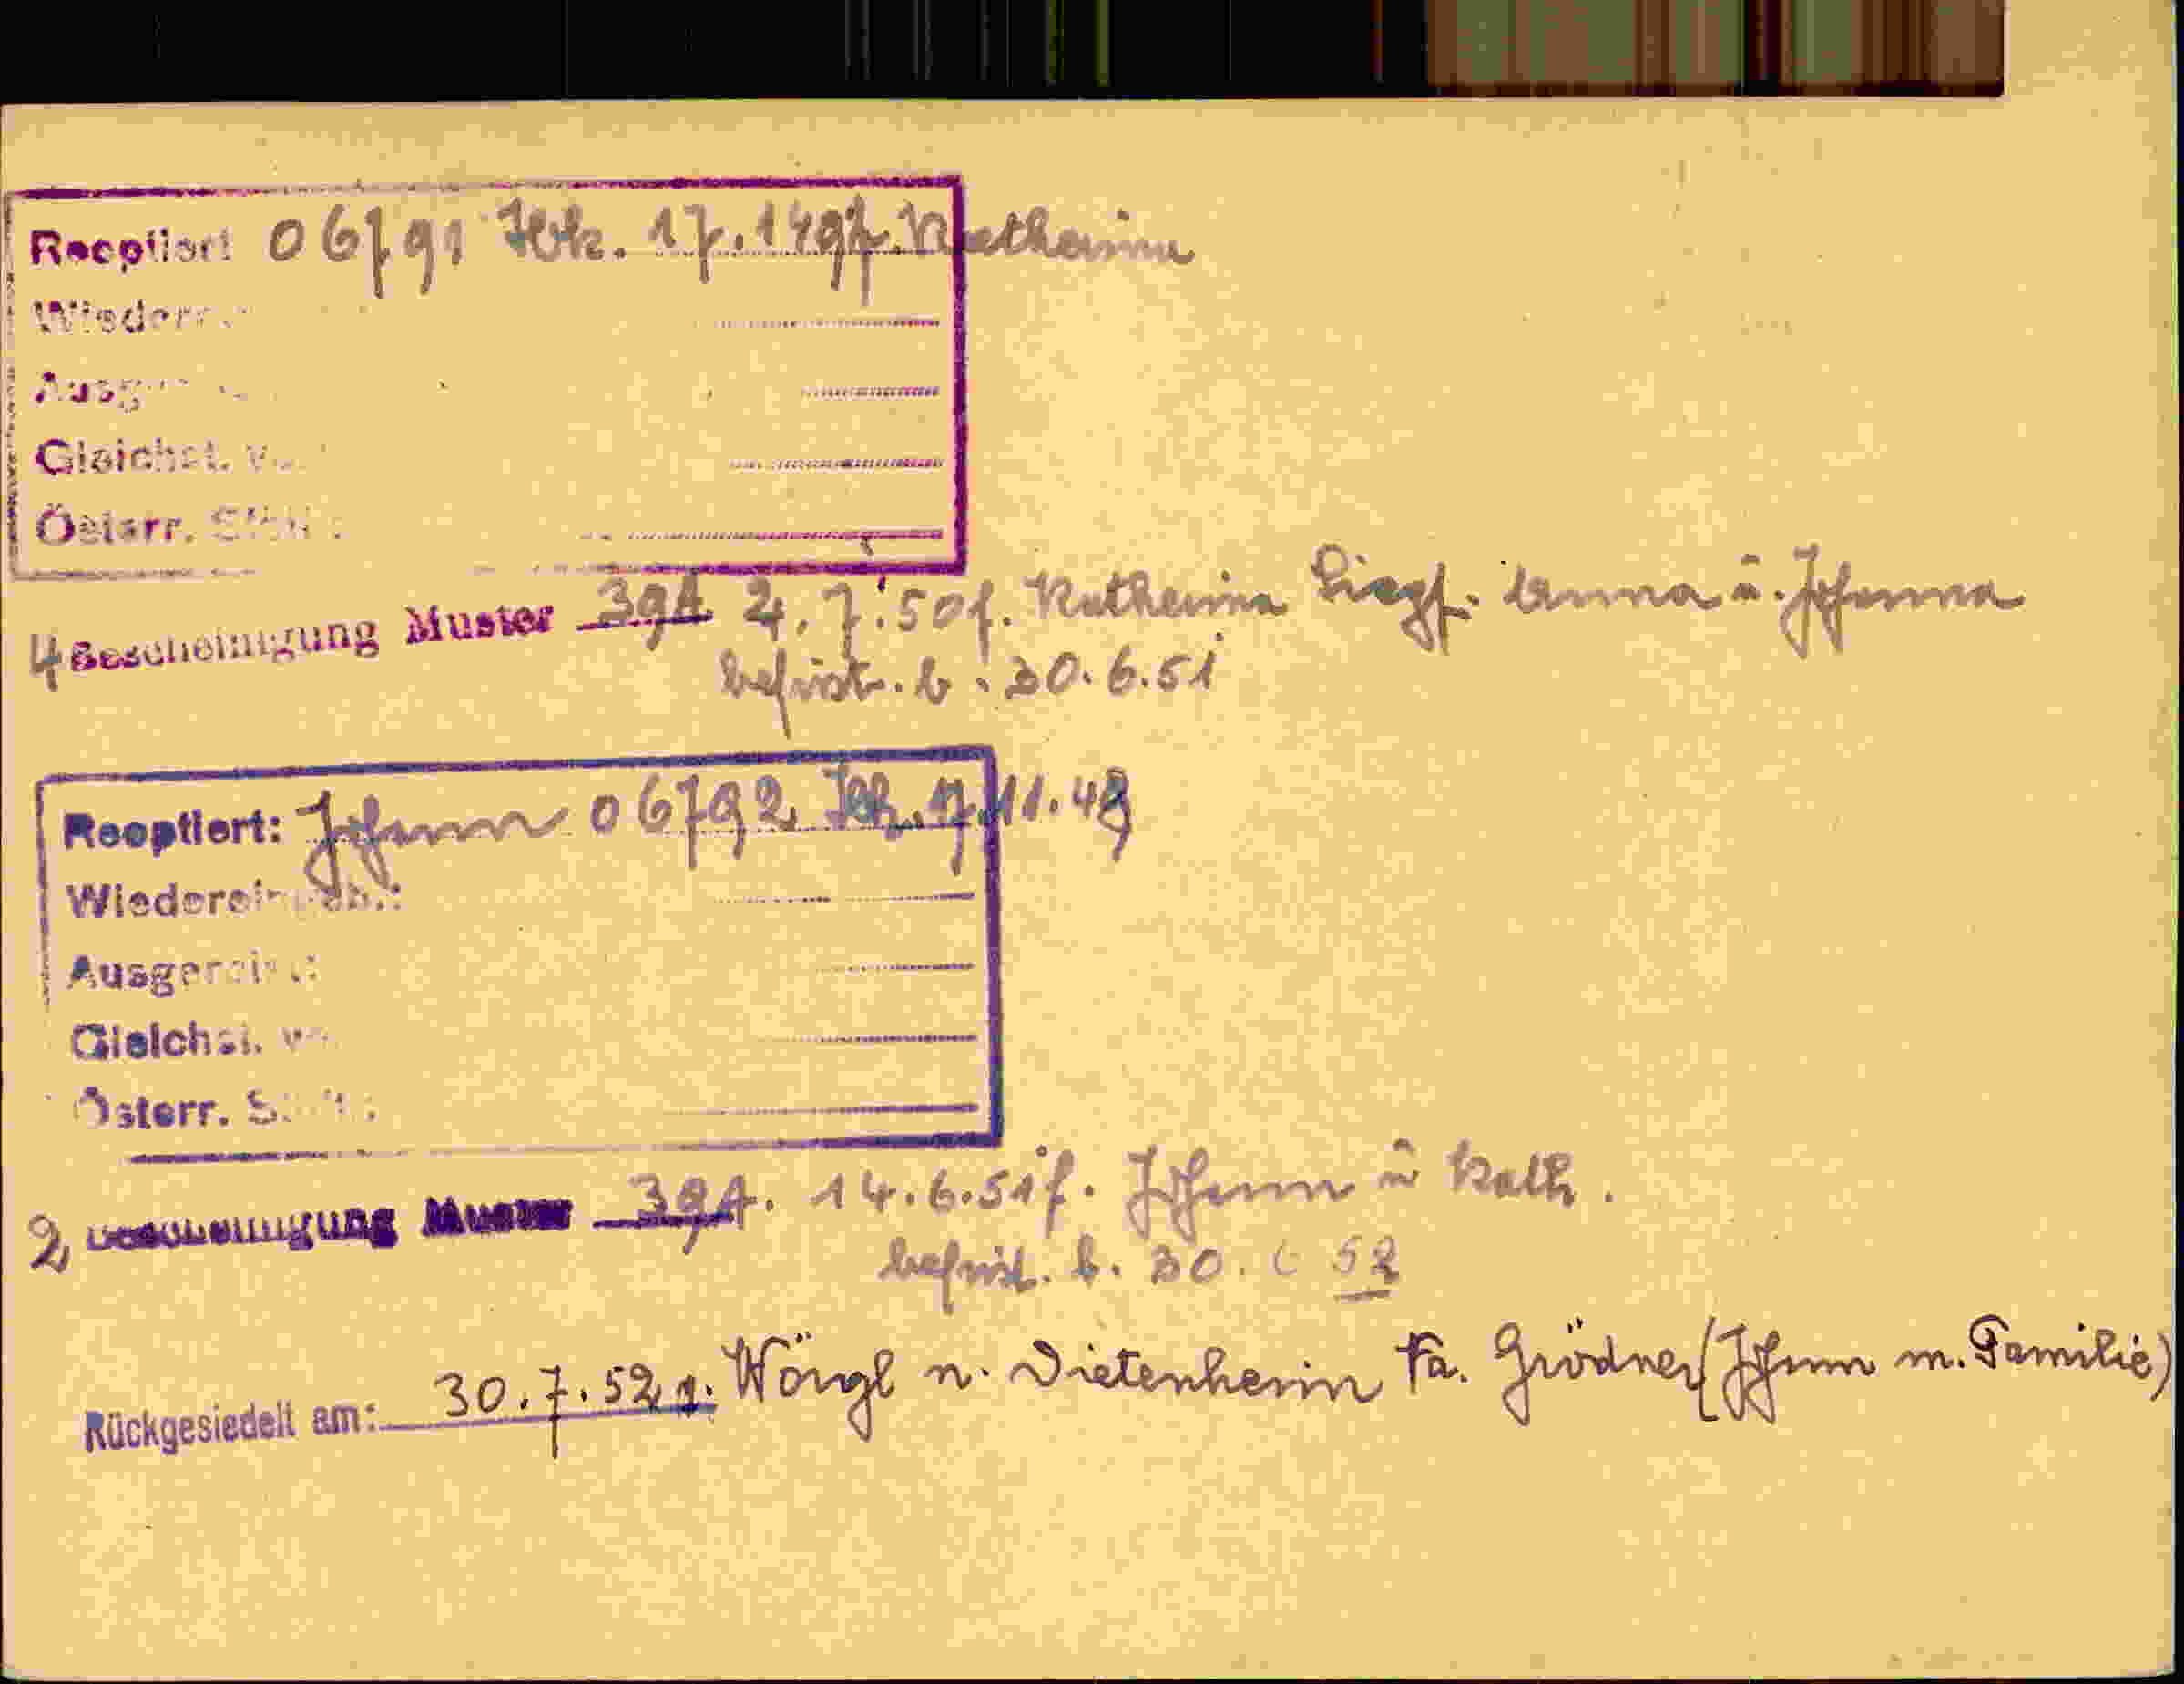 Reoptiert 06791 Ibk. 17. Katharina
Wiederr
Ausg
Gleichst. v.
Österr.
4 Bescheinigung Muster 39A 4.7.50 f. Katharina Siegf. Anna u. Johanna
befrist. b. 30.6.51
Reoptiert: Johann 06792 Ibk. 17.11.49
Wiedereinb.:
Ausgereist:
Gleichst. v
Österr. S
2 Bescheinigung Muster 39A. 14.6.51 f. Johann u Kath.
befrist. b. 30. 6 52
Rückgesiedelt am: 30.7.52 v. Wörgl n. Dietenheim Fa. Grödner (Johann m. Familie)